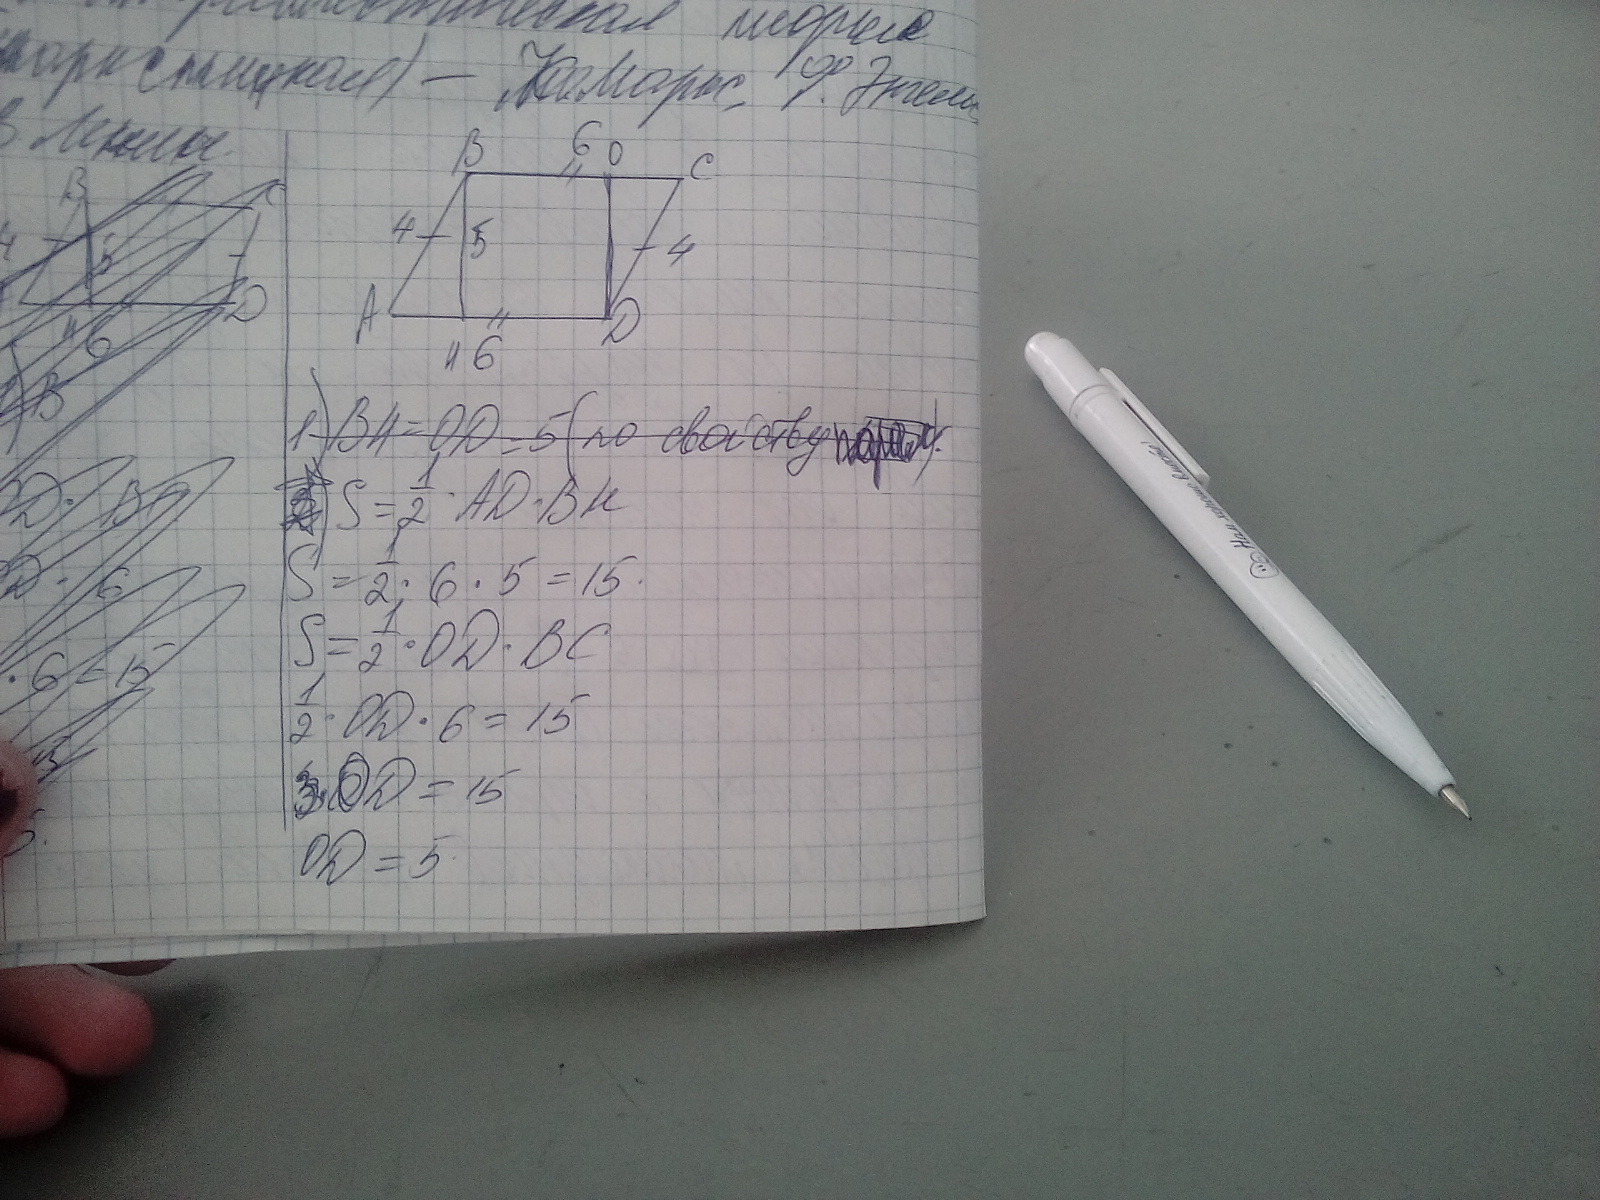 теория
(марксистская) — К. Маркс, Ф. Энгельс
В. Ленин.
B C
4 5
D
H 6
B
D · BC
D · 6
· 6 = 15
15
5.
B 6 O C
4 5 4
A D
H 6
1) BH = OD = 5 (по свойству
2) S = 1/2 · AD · BH
S = 1/2 · 6 · 5 = 15.
S = 1/2 · OD · BC
1/2 · OD · 6 = 15
3 · OD = 15
OD = 5.